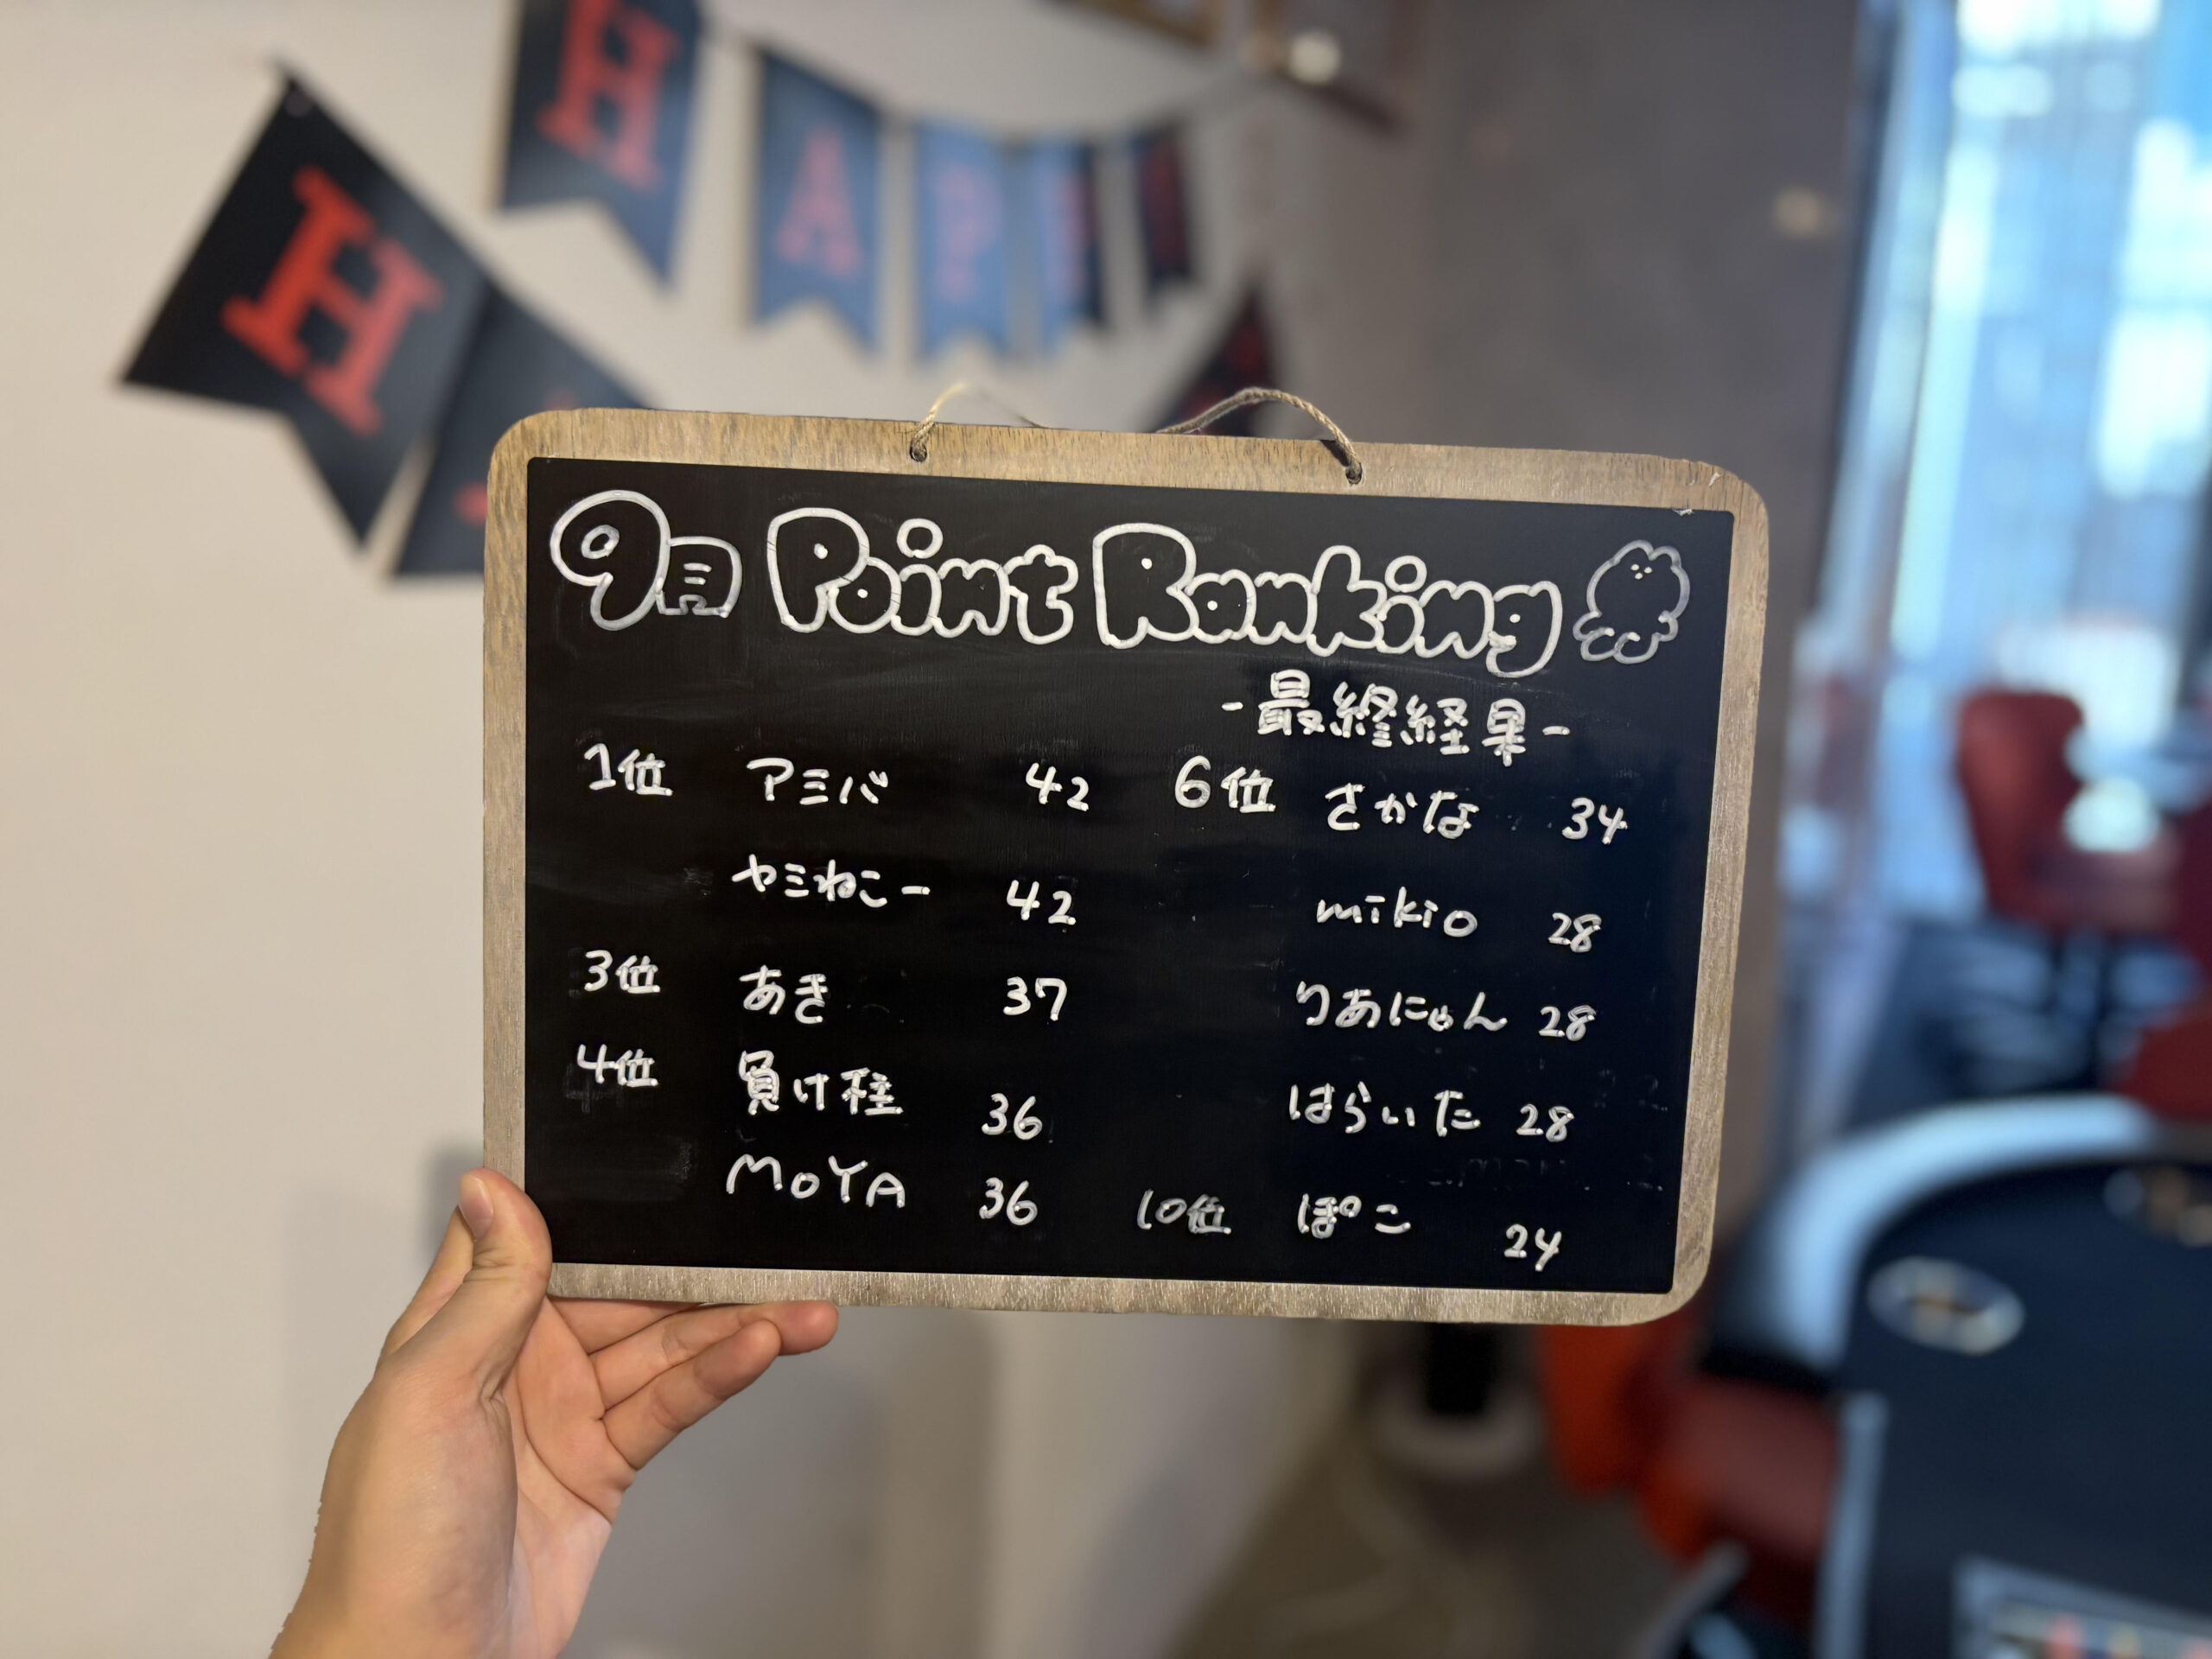 H
H
A
P
9月 Point Ranking
-最終経果-
1位 アミバ 42
ヤミねこー 42
3位 あき 37
4位 負け種 36
MoYA 36
6位 さかな 34
mikio 28
りあにゃん 28
はらいた 28
10位 ぽこ 24